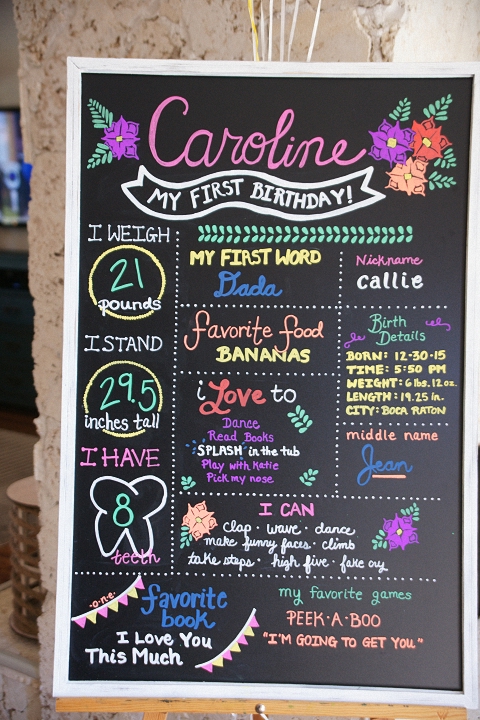 Caroline
MY FIRST BIRTHDAY!
I WEIGH
21
pounds
I STAND
29.5
inches tall
I HAVE
8
teeth
MY FIRST WORD
Dada
Nickname
Callie
favorite food
BANANAS
Birth
Details
BORN: 12-30-15
TIME: 5:50 PM
WEIGHT: 6 lbs. 12 oz.
LENGTH: 19.25 in.
CITY: BOCA RATON
i Love to
Dance
Read Books
SPLASH in the tub
Play with Katie
Pick my nose
middle name
Jean
I CAN
clap · wave · dance
make funny faces · climb
take steps · high five · fake cry
·o·n·e·
favorite
book
I Love You
This Much
my favorite games
PEEK·A·BOO
"I'M GOING TO GET YOU"